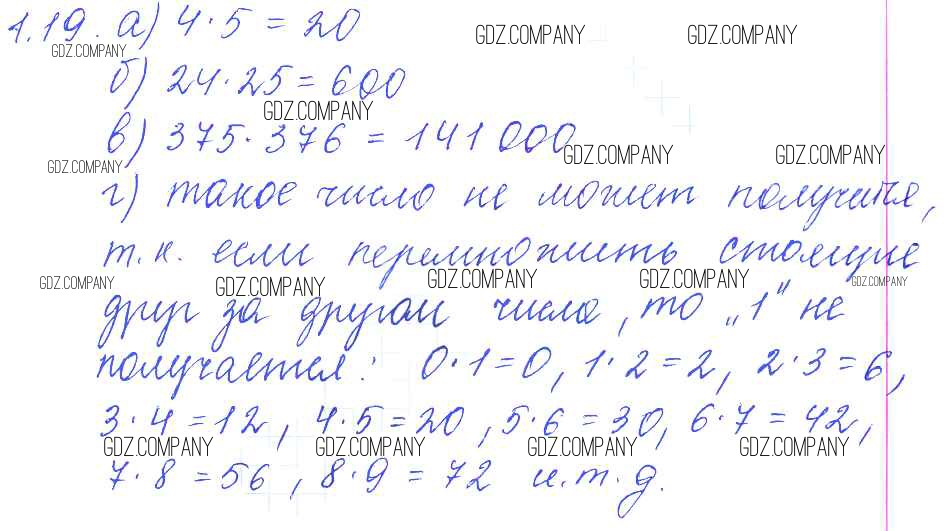 1.19. а) 4·5 = 20
GDZ.COMPANY GDZ.COMPANY GDZ.COMPANY
б) 24·25 = 600
GDZ.COMPANY
в) 375·376 = 141 000
GDZ.COMPANY GDZ.COMPANY GDZ.COMPANY
г) такое число не может получится,
т.к. если перемножить стоящие
GDZ.COMPANY GDZ.COMPANY GDZ.COMPANY GDZ.COMPANY GDZ.COMPANY
друг за другом числа, то „1" не
получается: 0·1=0, 1·2=2, 2·3=6,
3·4=12, 4·5=20, 5·6=30, 6·7=42,
GDZ.COMPANY GDZ.COMPANY GDZ.COMPANY GDZ.COMPANY
7·8=56, 8·9=72 и.т.д.